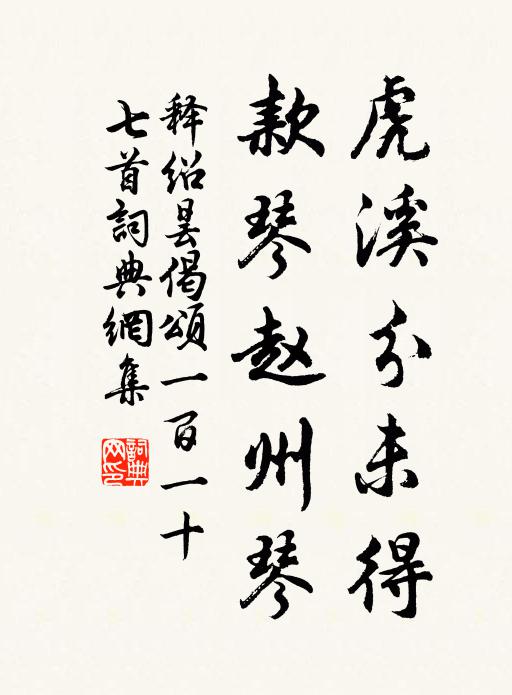 虎溪分未得
款琴赵州琴
释绍昙偈頌一百一十
七首詞典網集
詞典網印